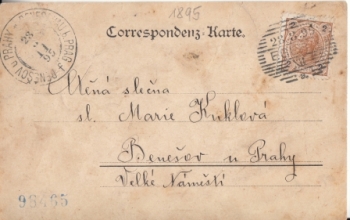 1895
Correspondenz-Karte.
BENEŠOV U PRAHY
Ctěná slečna
sl. Marie Kuklová
Benešov u Prahy
Velké Náměstí
98465